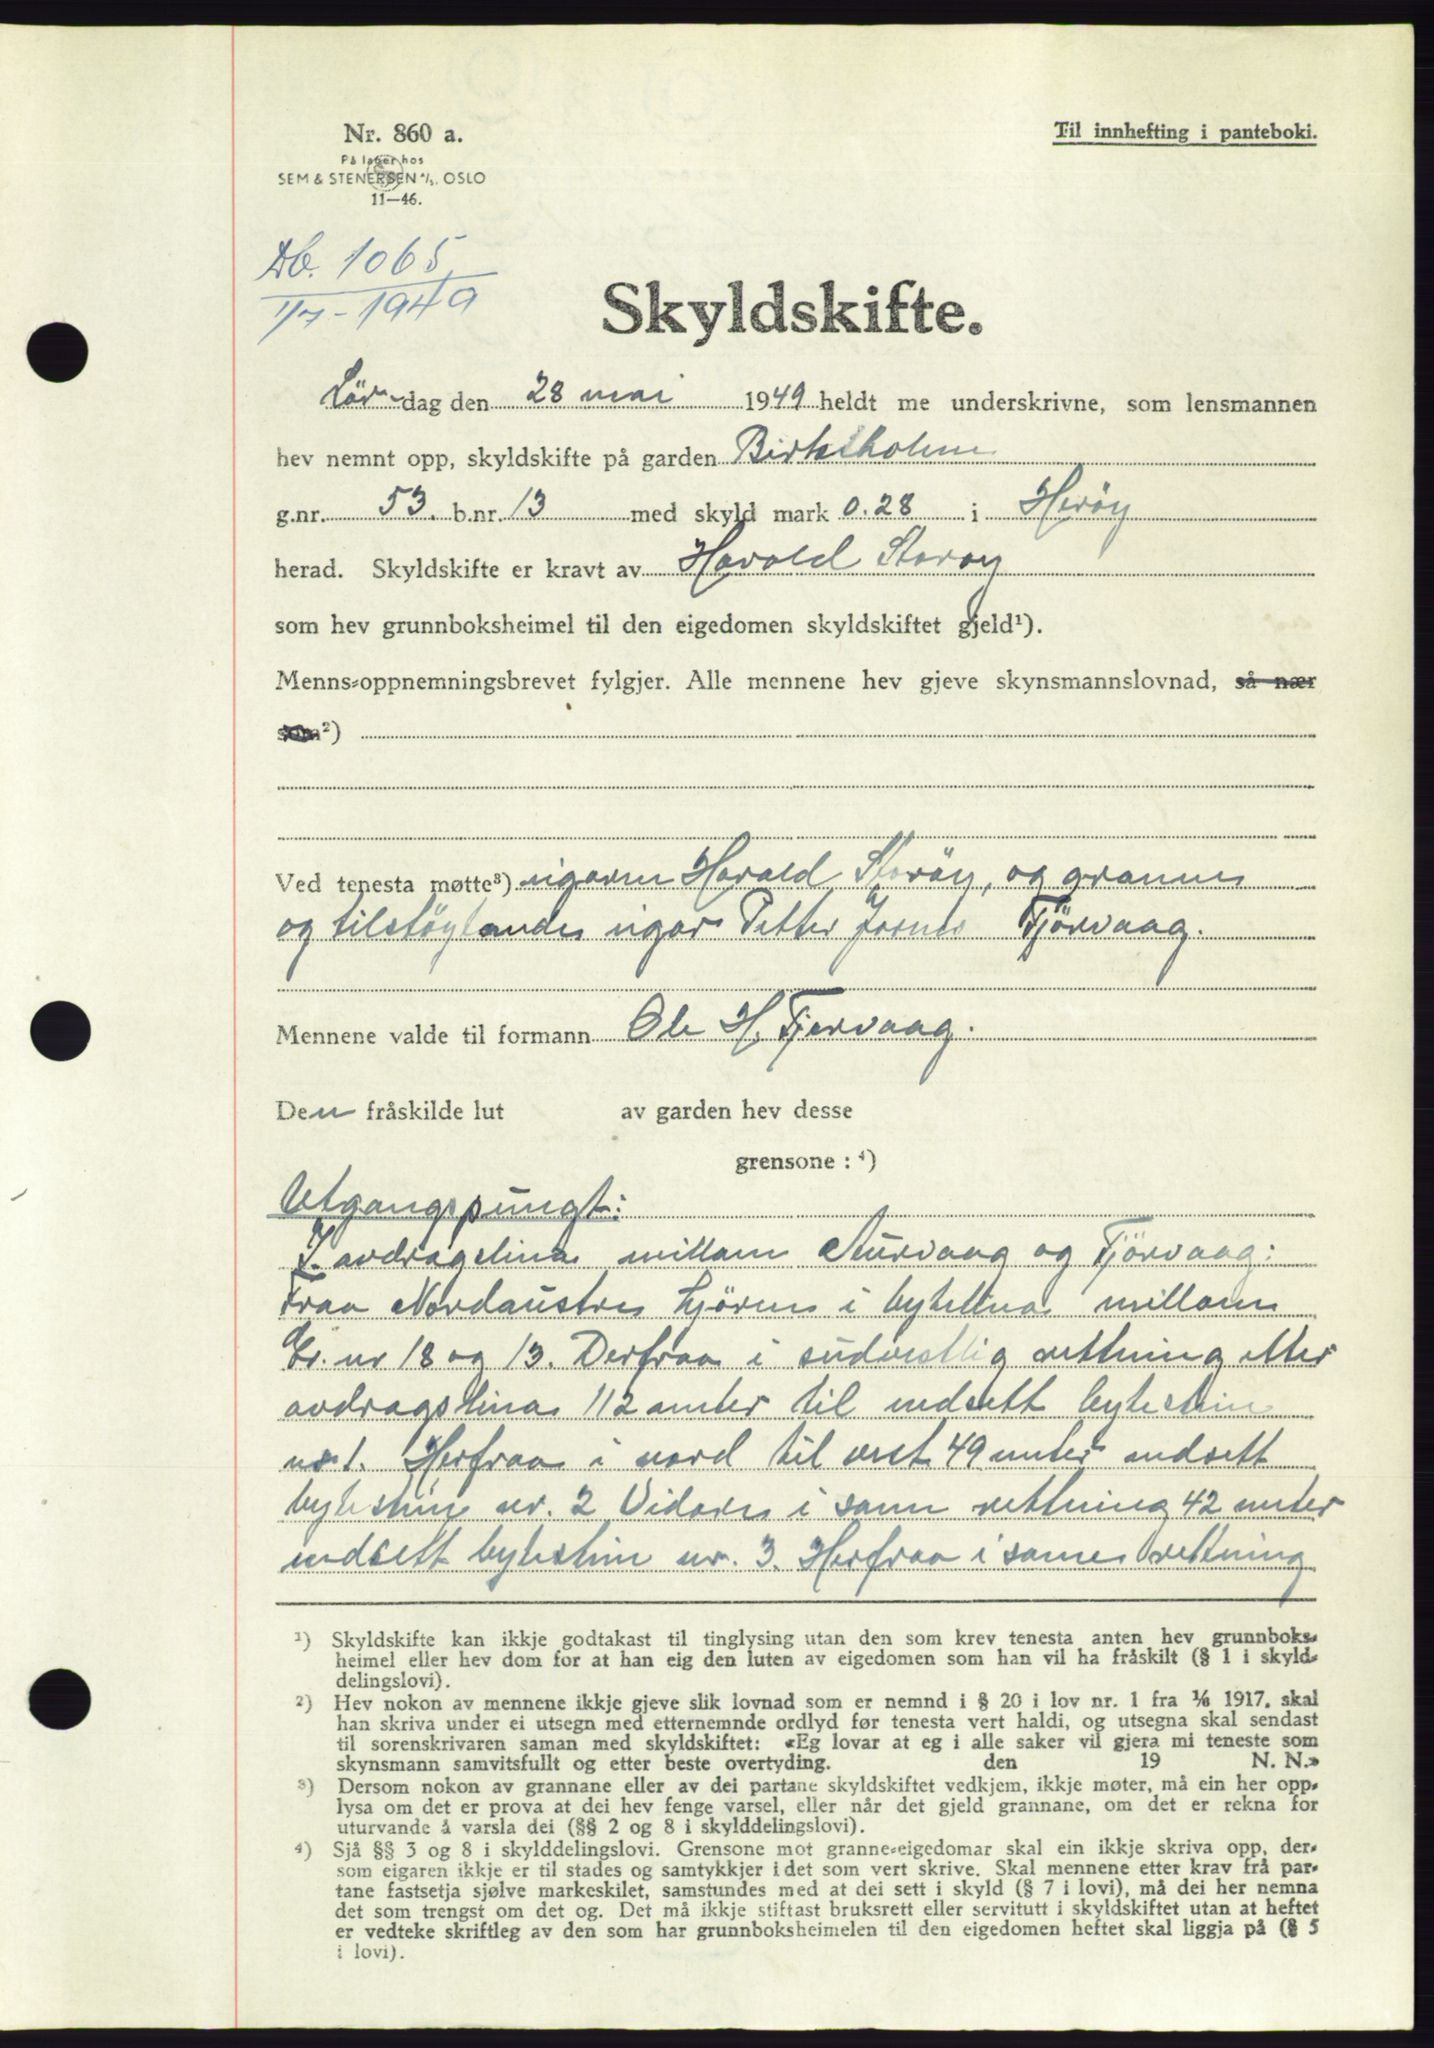 Nr. 860 a.
På lager hos
SEM & STENERSEN A/S. OSLO
11—46.
Til innhefting i panteboki.
Db. 1065
1/7 - 1949
Skyldskifte.
Lör-dag den 28 mai 1949 heldt me underskrivne, som lensmannen
hev nemnt opp, skyldskifte på garden Birkeholm
g.nr. 53. b.nr. 13 med skyld mark 0.28 i Herøy
herad. Skyldskifte er kravt av Harald Storøy
som hev grunnboksheimel til den eigedomen skyldskiftet gjeld¹).
Menns-oppnemningsbrevet fylgjer. Alle mennene hev gjeve skynsmannslovnad, så nær
som²)
Ved tenesta møtte³) eigaren Harald Storöy, og granne
og tilstøytande eigar Petter Fjörvaag.
Mennene valde til formann Ole H. Fjørvaag.
Den fråskilde lut av garden hev desse
grensone : ⁴)
Utgangspungt:
I avdragslina millam Nurvaag og Fjörvaag:
Fraa Nordaustre hjörne i bytelina millam
br. nr 18 og 13. Derfraa i südvestlig rettning etter
avdragslina 112 meter til nedsett bytestein
nr 1. Herfraa i nord til vest 49 meter nedsett
bytestein nr. 2 Vidare i same rettning 42 meter
nedsett bytestein nr. 3. Herfraa i same rettning
¹) Skyldskifte kan ikkje godtakast til tinglysing utan den som krev tenesta anten hev grunnboks-
heimel eller hev dom for at han eig den luten av eigedomen som han vil ha fråskilt (§ 1 i skyld-
delingslovi).
²) Hev nokon av mennene ikkje gjeve slik lovnad som er nemnd i § 20 i lov nr. 1 fra ⅛ 1917, skal
han skriva under ei utsegn med etternemnde ordlyd før tenesta vert haldi, og utsegna skal sendast
til sorenskrivaren saman med skyldskiftet: «Eg lovar at eg i alle saker vil gjera mi teneste som
skynsmann samvitsfullt og etter beste overtyding. den 19 N. N.»
³) Dersom nokon av grannane eller av dei partane skyldskiftet vedkjem, ikkje møter, må ein her opp-
lysa om det er prova at dei hev fenge varsel, eller når det gjeld grannane, om det er rekna for
uturvande å varsla dei (§§ 2 og 8 i skylddelingslovi).
⁴) Sjå §§ 3 og 8 i skylddelingslovi. Grensone mot granne-eigedomar skal ein ikkje skriva opp, der-
som eigaren ikkje er til stades og samtykkjer i det som vert skrive. Skal mennene etter krav frå par-
tane fastsetja sjølve markeskilet, samstundes med at dei sett i skyld (§ 7 i lovi), må dei her nemna
det som trengst om det og. Det må ikkje stiftast bruksrett eller servitutt i skyldskiftet utan at heftet
er vedteke skriftleg av den som har grunnboksheimelen til den eigedomen heftet skal liggja på (§ 5
i lovi).